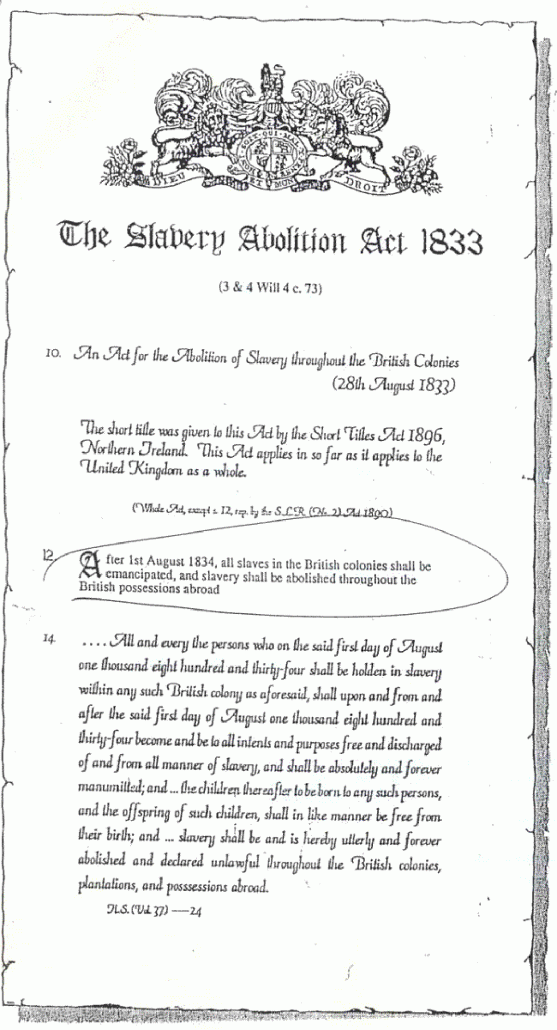 DIEU ET MON DROIT
The Slavery Abolition Act 1833
(3 & 4 Will 4 c. 73)
10. An Act for the Abolition of Slavery throughout the British Colonies
(28th August 1833)
The short title was given to this Act by the Short Titles Act 1896,
Northern Ireland. This Act applies in so far as it applies to the
United Kingdom as a whole.
(Whole Act, except s. 12, rep. by the S.L.R. (No. 2) Act 1890)
12. After 1st August 1834, all slaves in the British colonies shall be
emancipated, and slavery shall be abolished throughout the
British possessions abroad
14. .... All and every the persons who on the said first day of August
one thousand eight hundred and thirty-four shall be holden in slavery
within any such British colony as aforesaid, shall upon and from and
after the said first day of August one thousand eight hundred and
thirty-four become and be to all intents and purposes free and discharged
of and from all manner of slavery, and shall be absolutely and forever
manumitted; and ... the children thereafter to be born to any such persons,
and the offspring of such children, shall in like manner be free from
their birth; and ... slavery shall be and is hereby utterly and forever
abolished and declared unlawful throughout the British colonies,
plantations, and posssessions abroad.
H.S. (Vol. 37) —24